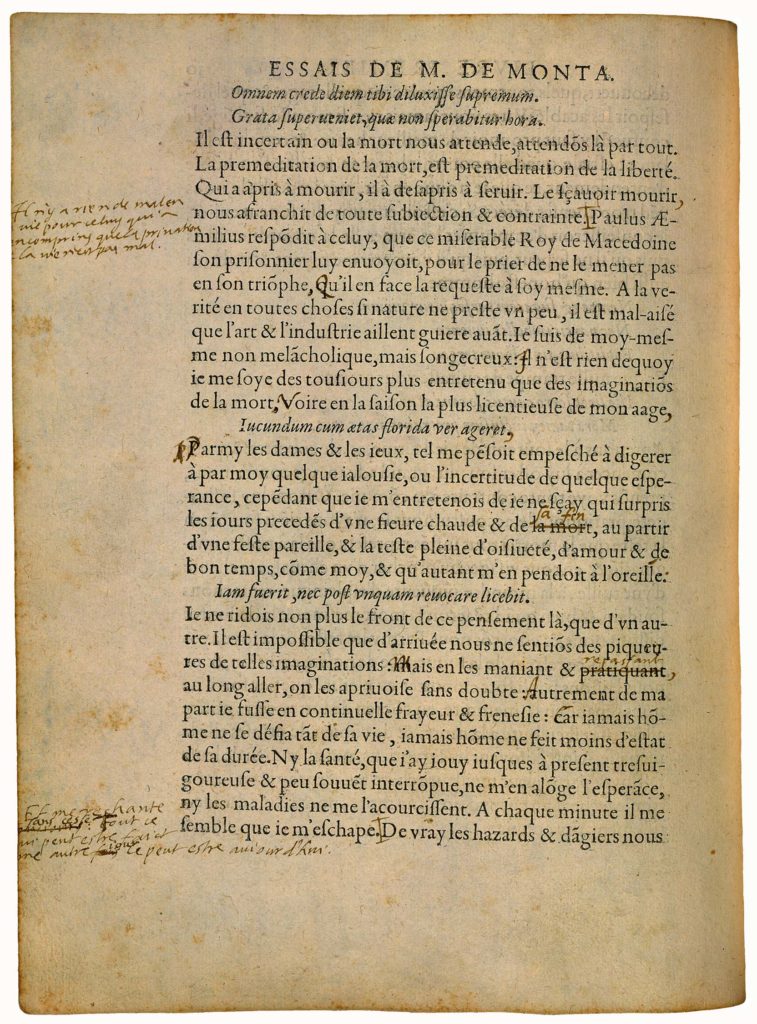 ESSAIS DE M. DE MONTA.
Omnem crede diem tibi diluxisse supremum.
Grata superueniet, quæ non sperabitur hora.
Il est incertain ou la mort nous attende, attendõs là par tout.
La premeditation de la mort, est premeditation de la liberté.
Qui a apris à mourir, il à desapris à seruir. Le sçauoir mourir,
nous afranchit de toute subiection & contrainte. Paulus Æ-
milius respõdit à celuy, que ce miserable Roy de Macedoine
son prisonnier luy enuoyoit, pour le prier de ne le mener pas
en son triõphe, Qu'il en face la requeste à soy mesme. A la ve-
rité en toutes choses si nature ne preste vn peu, il est mal-aisé
que l'art & l'industrie aillent guiere auãt. Ie suis de moy-mes-
me non melãcholique, mais songecreux: Il n'est rien dequoy
ie me soye des tousiours plus entretenu que des imaginatiõs
de la mort, Voire en la saison la plus licentieuse de mon aage,
Iucundum cum ætas florida ver ageret,
Parmy les dames & les ieux, tel me pẽsoit empesché à digerer
à par moy quelque ialousie, ou l'incertitude de quelque espe-
rance, cepẽdant que ie m'entretenois de ie ne sçay qui surpris
les iours precedẽs d'vne fieure chaude & de la mort, au partir
sa fin
d'vne feste pareille, & la teste pleine d'oisiueté, d'amour & de
bon temps, cõme moy, & qu'autant m'en pendoit à l'oreille:
Iam fuerit, nec post vnquam reuocare licebit.
Ie ne ridois non plus le front de ce pensement là, que d'vn au-
tre. Il est impossible que d'arriuée nous ne sentiõs des piqueu-
res de telles imaginations: Mais en les maniant & pratiquant,
repassant
au long aller, on les apriuoise sans doubte: Autrement de ma
part ie fusse en continuelle frayeur & frenesie: Car iamais hõ-
me ne se défia tãt de sa vie, iamais hõme ne feit moins d'estat
de sa durée. Ny la santé, que i'ay iouy iusques à present tresui-
goureuse & peu souuẽt interrõpue, ne m'en alõge l'esperãce,
ny les maladies ne me l'acourcissent. A chaque minute il me
semble que ie m'eschape. De vray les hazards & dãgiers nous
Il n'y a rien de mal en
vie pour celuy qui a
comprins que la priuation
la vie n'est pas mal.
Et me rechante
sans cesse: Tout ce
qui peut estre faict
me autre iour le peut estre auiourd'hui.